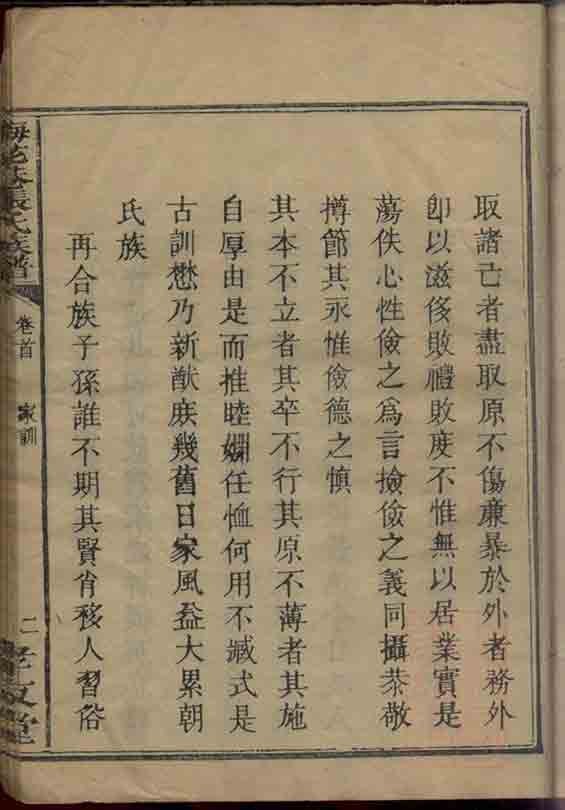 取諸己者盡取原不傷亷暴於外者務外
即以滋侈敗禮敗度不惟無以居業實是
蕩佚心性儉之爲言撿儉之義同攝恭敬
撙節其永惟儉德之慎
其本不立者其卒不行其原不薄者其施
自厚由是而推睦婣任恤何用不臧式是
古訓懋乃新猷庻幾舊日家風益大累朝
氏族
再合族子孫誰不期其賢肖移人習俗
梅花巷張氏族譜
卷首 家訓
二